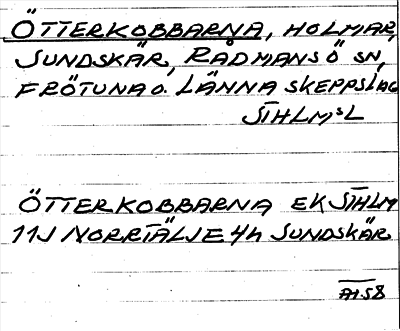 ÖTTERKOBBARNA, HOLMAR,
SUNDSKÄR, RÅDMANSÖ SN,
FRÖTUNA O. LÄNNA SKEPPSLAG
STHLMSL
ÖTTERKOBBARNA EK STHLM
11J NORRTÄLJE 4h SUNDSKÄR